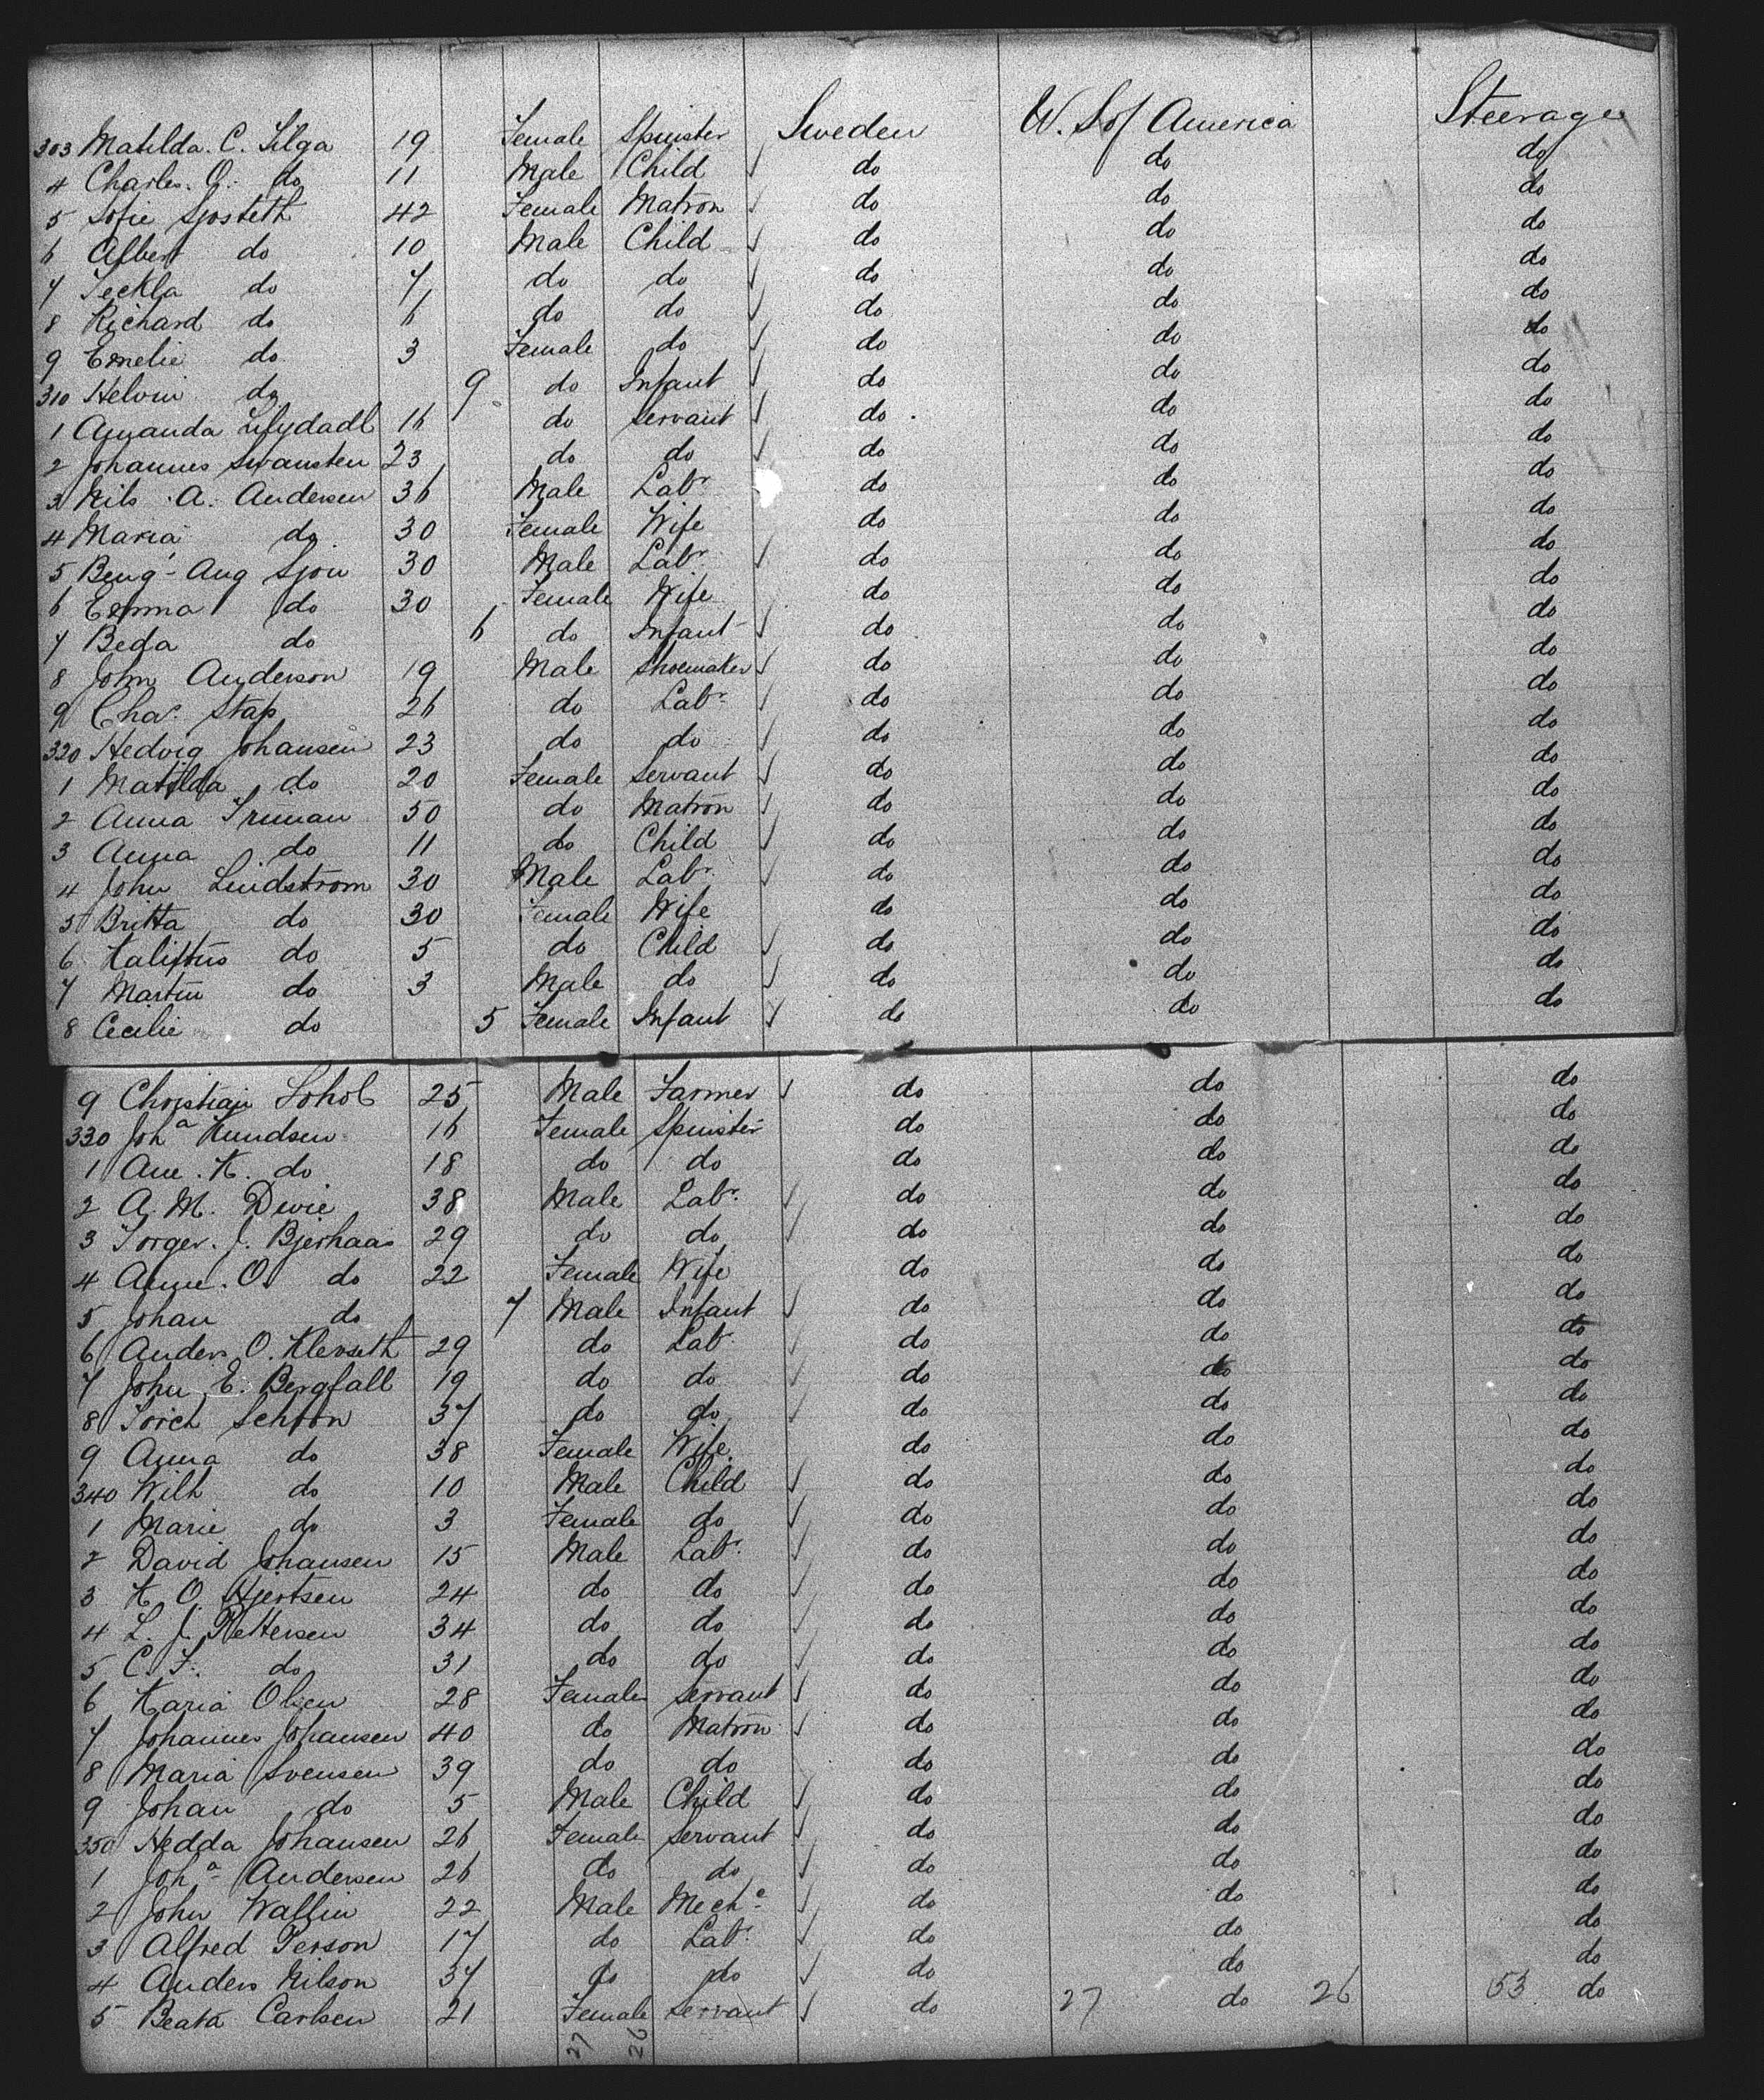 303 Matilda. C. Lilga 19 Female Spinster Sweden U. S of America Steerage
4 Charles. O. do 11 Male Child do do do
5 Sofie Sjosteth 42 Female Matron do do do
6 Albert do 10 Male Child do do do
7 Teckla do 7 do do do do do
8 Richard do 6 do do do do do
9 Emelie do 3 Female do do do do
310 Helvin do 9 do Infant do do do
1 Amanda Lilydadl 16 do Servant do do do
2 Johannes Swansten 23 do do do do do
3 Nils A. Andersen 36 Male Labr do do do
4 Maria do 30 Female Wife do do do
5 Beng- Aug Sjon 30 Male Labr do do do
6 Emma do 30 Female Wife do do do
7 Beda do 6 do Infant do do do
8 John Anderson 19 Male Shoemaker do do do
9 Chas. Stap 26 do Labr do do do
320 Hedvig Johansen 23 do do do do do
1 Matilda do 20 Female Servant do do do
2 Anna Triman 50 do Matron do do do
3 Anna do 11 do Child do do do
4 John Lindstrom 30 Male Labr do do do
5 Britta do 30 Female Wife do do do
6 do 5 do Child do do do
7 Martin do 3 Male do do do do
8 Cecilie do 5 Female Infant do do do
9 Christian Lohol 25 Male Farmer do do do
330 Joha Knudsen 16 Female Spinster do do do
1 Ane. K. do 18 do do do do do
2 A. M. Divie 38 Male Labr. do do do
3 Torger. J. Bjerhaas 29 do do do do do
4 Anne. O. do 22 Female Wife do do do
5 Johan do 7 Male Infant do do do
6 Anders O. Klevseth 29 do Labr do do do
7 John E. Bergfall 19 do do do do do
8 Torch Schoon 37 do do do do do
9 Anna do 38 Female Wife do do do
340 Wilh do 10 Male Child do do do
1 Marie do 3 Female do do do do
2 David Johansen 15 Male Labr. do do do
3 K O. Hjertsen 24 do do do do do
4 L. J. Pettersen 34 do do do do do
5 C. F. do 31 do do do do do
6 Karia Olsen 28 Female Servant do do do
7 Johannes Johansen 40 do Matron do do do
8 Maria Svensen 39 do do do do do
9 Johan do 5 Male Child do do do
350 Hedda Johansen 26 Female Servant do do do
1 Joha Andersen 26 do do do do do
2 John Wallin 22 Male Mechc do do do
3 Alfred Person 17 do Labr. do do do
4 Anders Nilson 37 do do do do do
5 Beata Carlsen 21 Female Servant do 27 do 26 53 do
27 26